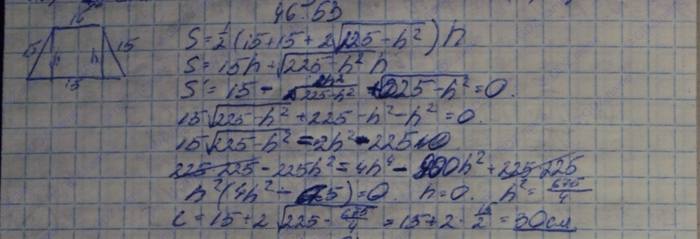 46.53
15
15 h h 15
15
S = 1/2 (15+15+2√(225-h²)) h
S = 15h + √(225-h²) h
S' = 15 - 2h²/√(225-h²) + √(225-h²) = 0.
15√(225-h²) + 225 - h² - h² = 0.
15√(225-h²) = 2h² - 225
225·225 - 225h² = 4h⁴ - 900h² + 225·225
h²(4h² - 675) = 0. h=0. h² = 675/4
c = 15+2√(225 - 675/4) = 15+2·15/2 = 30см